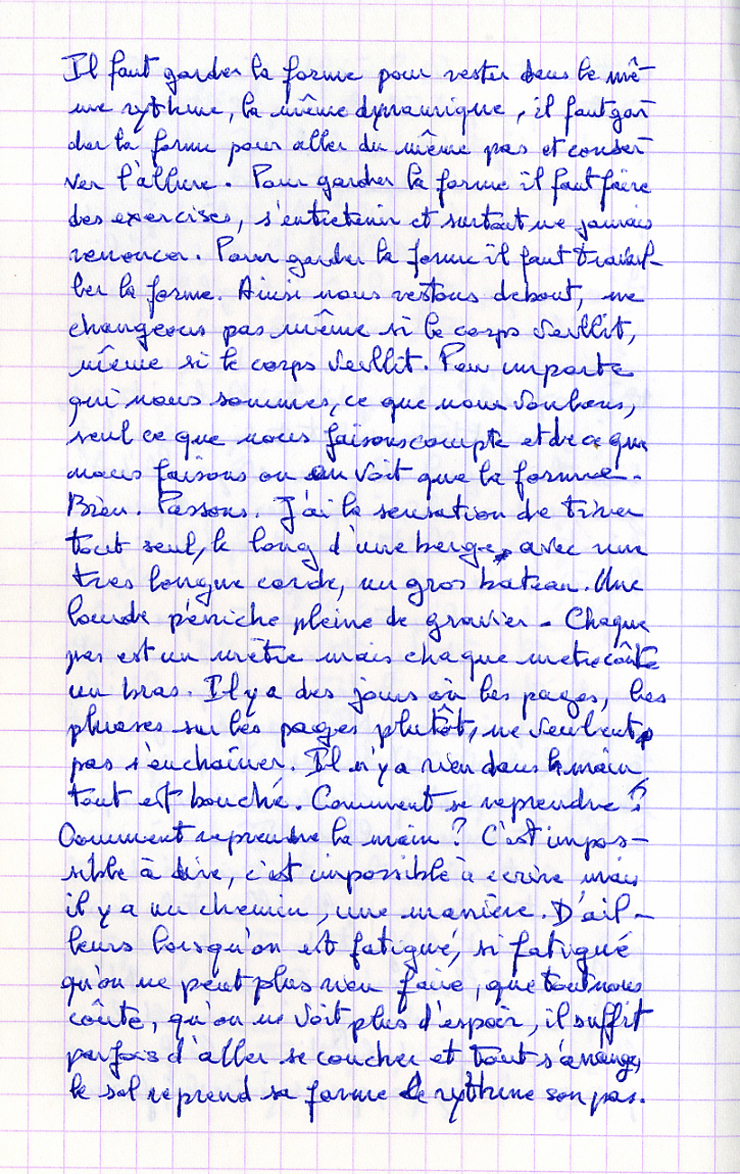 Il faut garder la forme pour rester dans le mê-
me rythme, la même dynamique, il faut gar-
der la forme pour aller du même pas et conser-
ver l'allure. Pour garder la forme il faut faire
des exercises, s'entretenir et surtout ne jamais
renoncer. Pour garder la forme il faut travail-
ler la forme. Ainsi nous restons debout, ne
changeons pas même si le corps vieillit,
même si le corps vieillit. Peu importe
qui nous sommes, ce que nous voulons,
seul ce que nous faisons compte et de ce que
nous faisons on en voit que la forme.
Bien. Passons. J'ai la sensation de tirer
tout seul, le long d'une berge, avec une
très longue corde, un gros bateau. Une
lourde péniche pleine de gravier - Chaque
pas est un mètre mais chaque metre coûte
un bras. Il y a des jours où les pages, les
phrases sur les pages plutôt, ne veulent
pas s'enchaîner. Il n'y a rien dans la main
tout est bouché. Comment se reprendre ?
Comment reprendre la main ? C'est impos-
sible à dire, c'est impossible à écrire mais
il y a un chemin, une manière. D'ail-
leurs lorsqu'on est fatigué, si fatigué
qu'on ne peut plus rien faire, que tout nous
coûte, qu'on ne voit plus d'espoir, il suffit
parfois d'aller se coucher et tout s'arrange,
le sol reprend sa forme le rythme son pas.